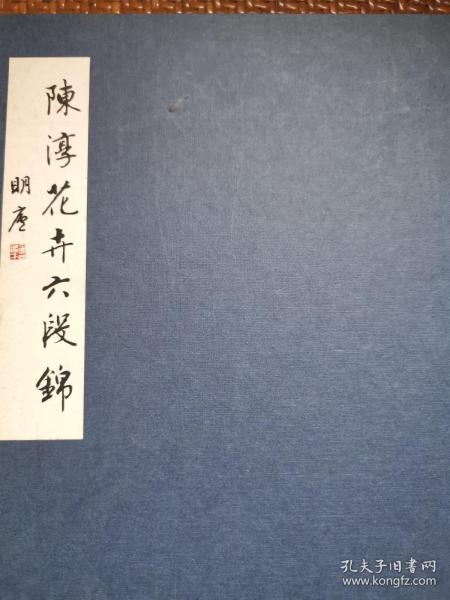 陳淳花卉六段錦
明廬
孔夫子旧书网
www.kongfz.com